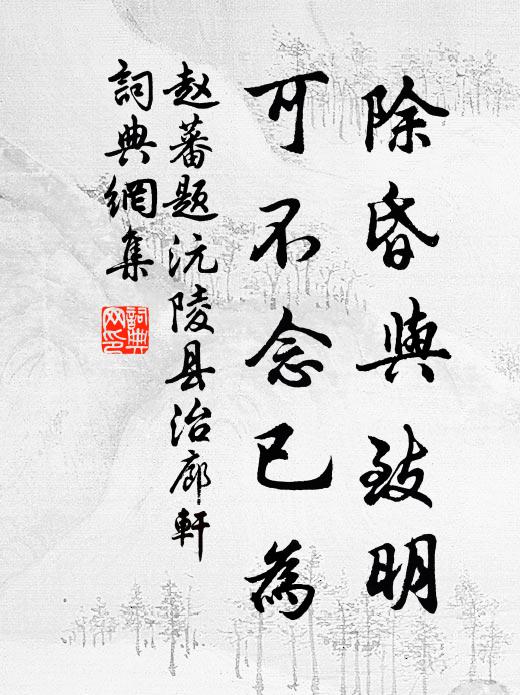 除昏與致明
可不念已為
赵蕃题沅陵县治廓軒
詞典網集
詞典網印